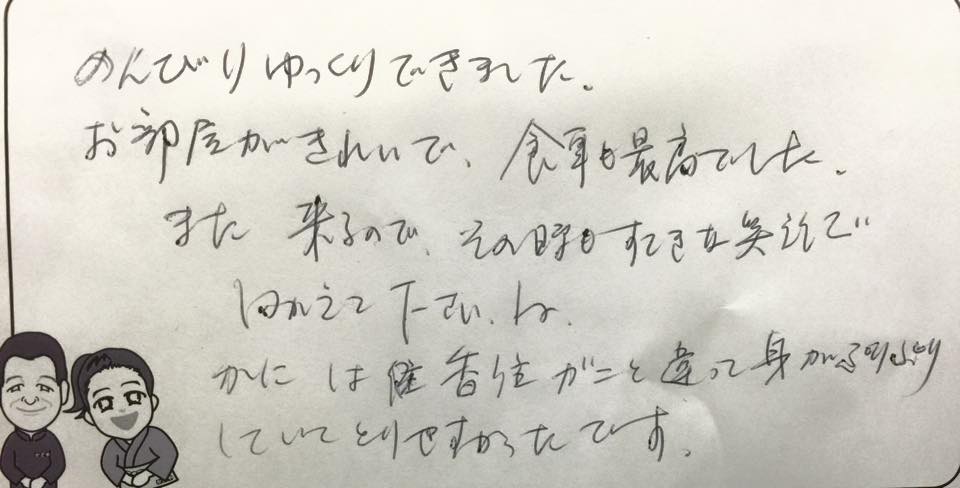 のんびりゆっくりできました。
お部屋がきれいで、食事も最高でした。
また来るので、その時もすてきな笑顔で
むかえて下さい、ね、
かには 香住がにと違って身がぷりぷり
していてとりやすかったです。